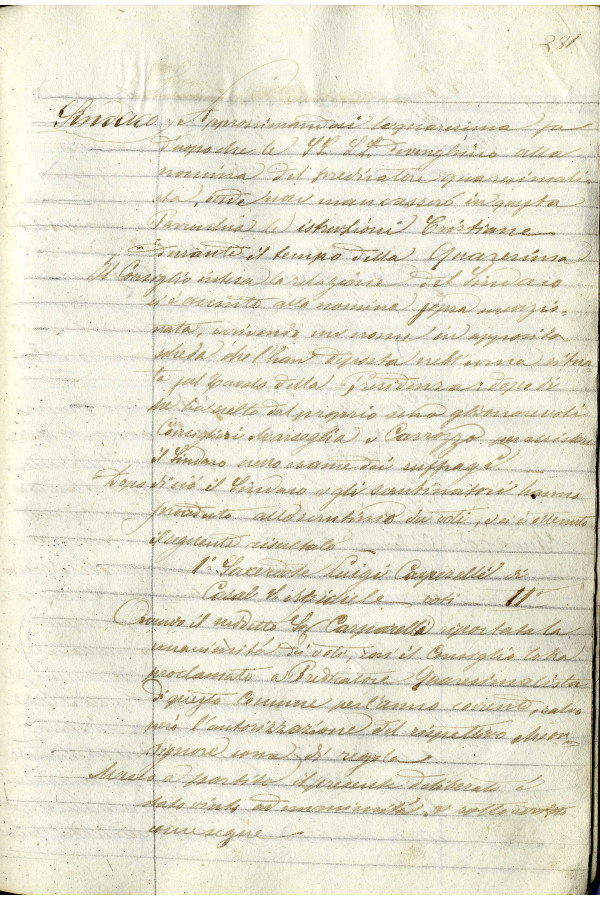 281
Sindaco Approssimandosi la quaresima fa
d'uopo che le SS. LL. devenghino alla
nomina del predicatore quaresimali-
sta, onde non mancassero in questa
Parrocchia le istruzioni Cristiane
durante il tempo della Quaresima
Il Consiglio intesa la relazione del Sindaco
è venuto alla nomina sopra menzio-
nata, scrivendo un nome in apposita
scheda che l'han deposta nell'urna situa-
ta sul tavolo della Presidenza: dopo di
che ha scelto dal proprio seno gli onorevoli
Consiglieri Marseglia e Carrozzo per assistere
il Sindaco nello esame dei suffragî
Dopo di ciò il Sindaco e gli scrutinatori hanno
proceduto allo scrutinio dei voti, e si è ottenuto
il seguente risultato
1° Sacerdote Luigi Casparelli di
Casal S. Michele voti 11
Avendo il suddetto Casparelli riportata la
unanimità dei voti, così il Consiglio lo ha
proclamato a Predicatore Quaresimalista
di questo Comune per l'anno corrente, salvo
però l'autorizzazione del rispettivo Mon-
signore come di regola
Messo a partito il presente deliberato è
stato vinto ad unanimità, e sottoscritto
come segue